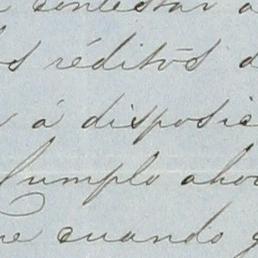 contestar a
os réditos d
á disposic
Cumplo ahor
ue cuando g